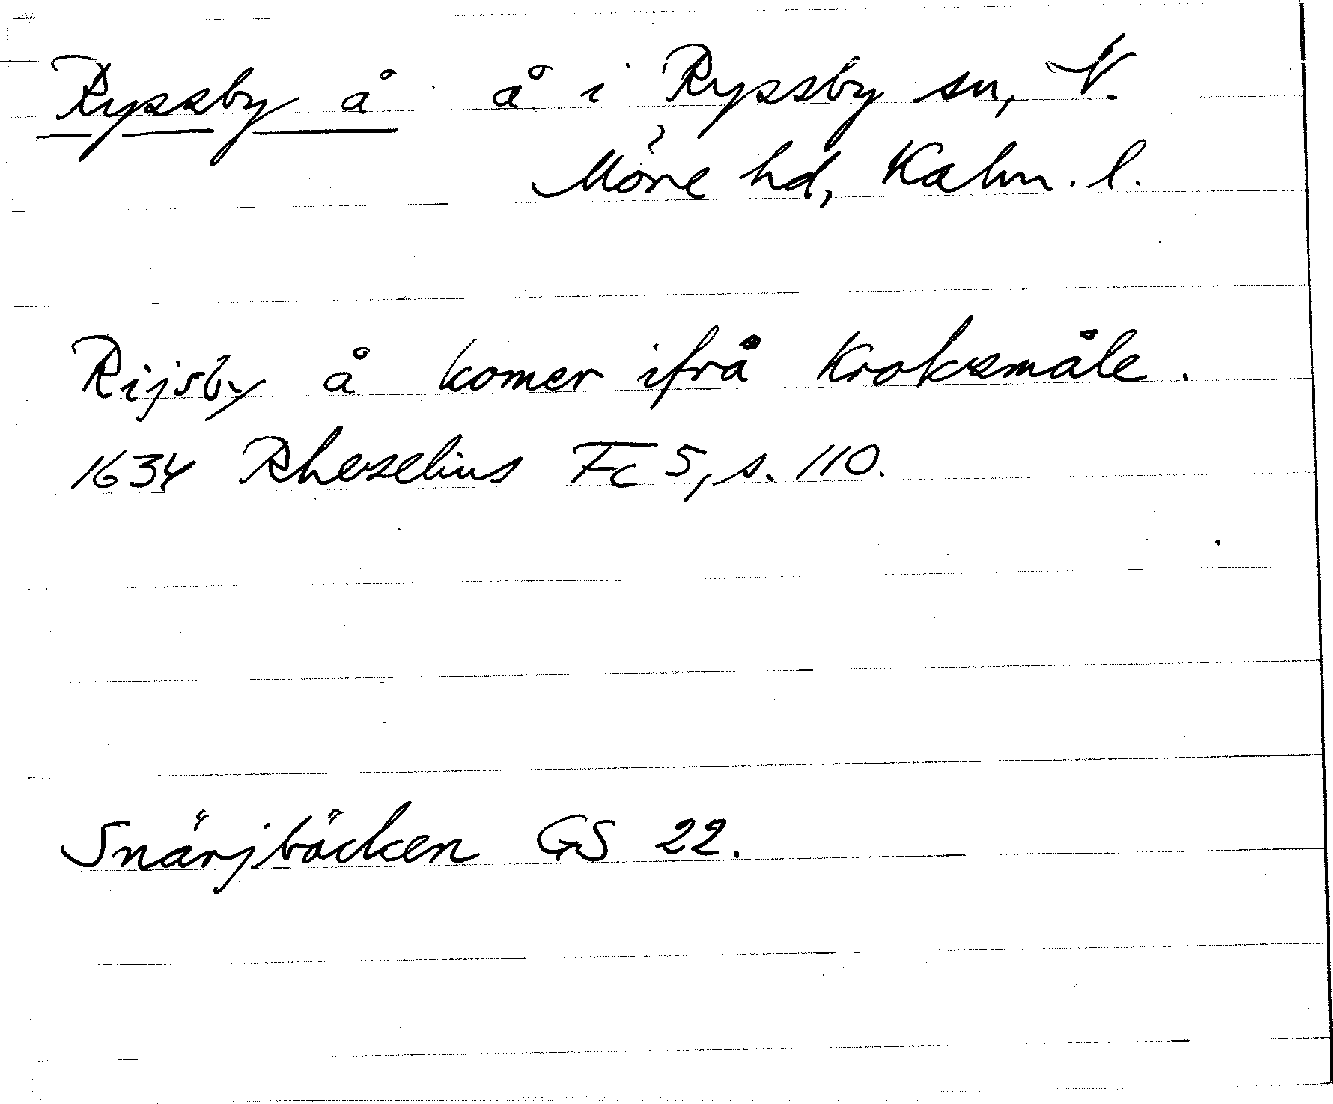 Ryssby å å i Ryssby sn, N.
Möre hd, Kalm. l.
Rijsby å komer ifrå Kroksmåle.
1634 Rhezelius Fc 5, s. 110.
Snärjbäcken GS 22.